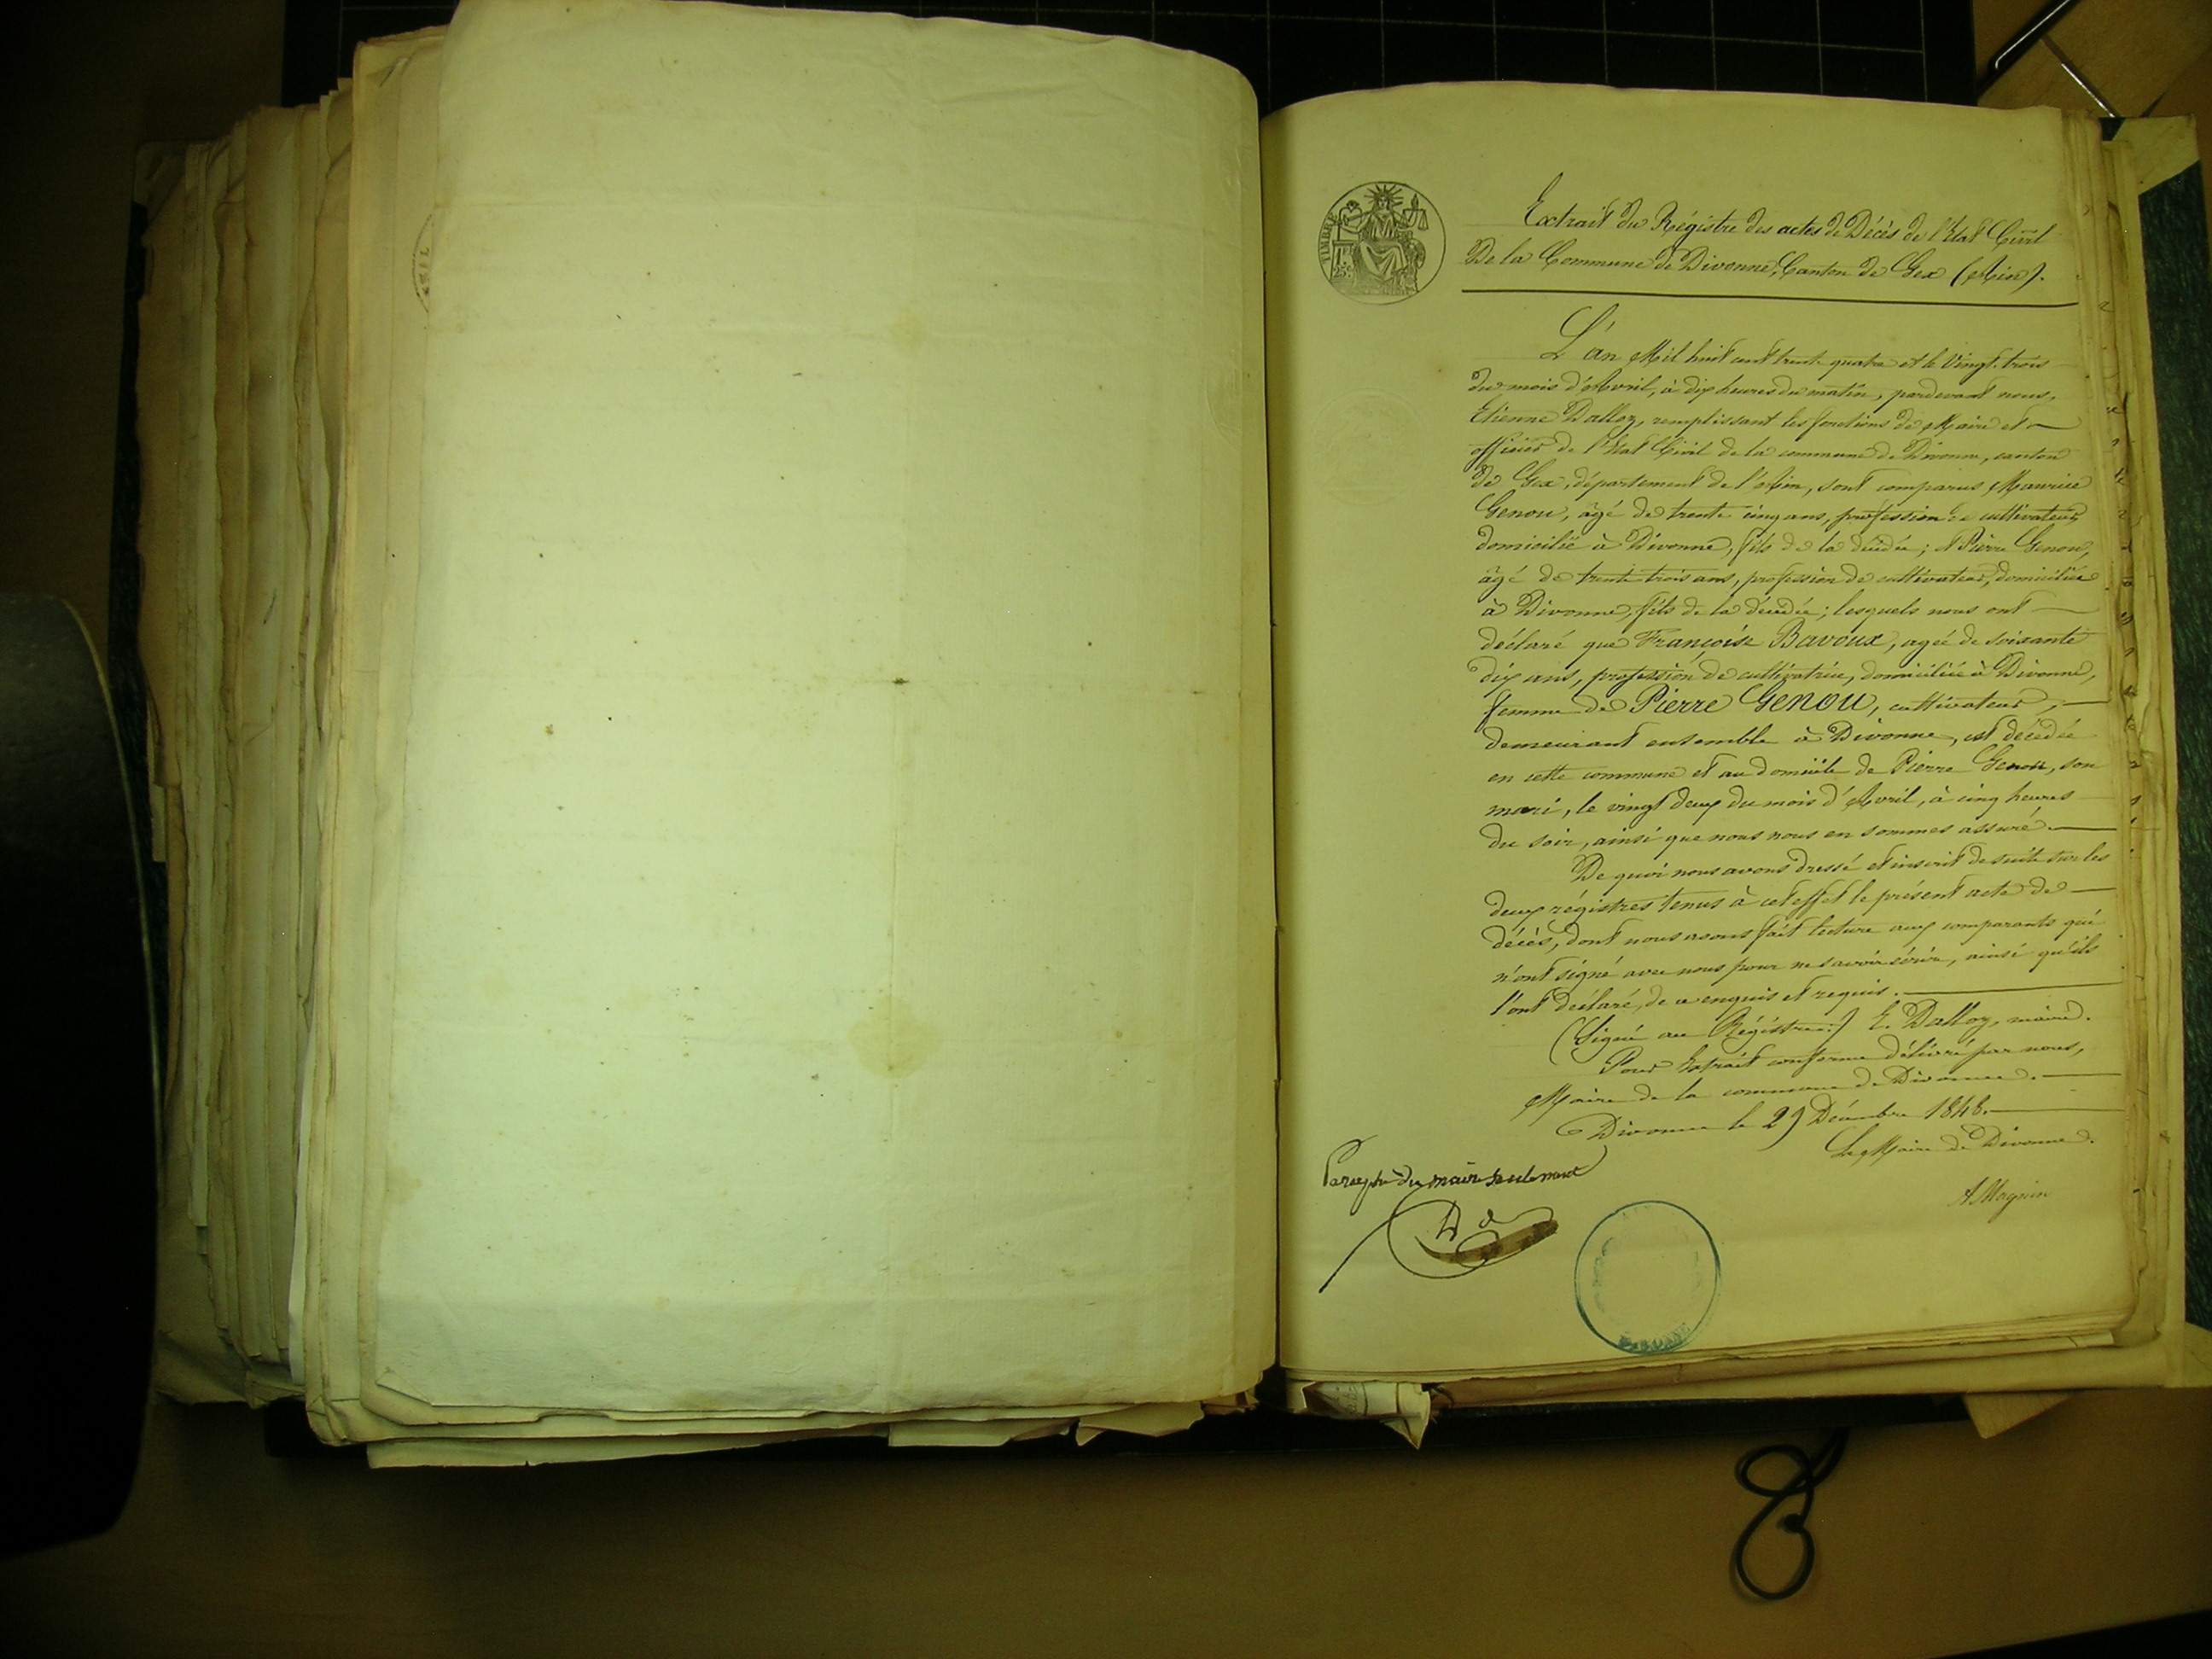 Extrait du Régistre des actes de Décès de l'Etat Civil
De la Commune de Divonne, Canton de Gex (Ain).
TIMBRE
25c
L'an Mil huit cent trente quatre et le Vingt-trois
du mois d'Avril, à dix heures du matin, pardevant nous,
Etienne Dalloz, remplissant les fonctions de Maire et
officier de l'Etat Civil de la commune de Divonne, canton
de Gex, département de l'Ain, sont comparus Maurice
Genou, âgé de trente cinq ans, profession de cultivateur,
domicilié à Divonne, fils de la décédée; et Pierre Genou,
âgé de trente trois ans, profession de cultivateur, domiciliée
à Divonne, fils de la décédée; lesquels nous ont
déclaré que Françoise Bavoux, agée de soixante
dix ans, profession de cultivatrice, domiciliée à Divonne,
femme de Pierre Genou, cultivateur,
demeurant ensemble à Divonne, est décédée
en cette commune et au domicile de Pierre Genou, son
mari, le vingt deux du mois d'Avril, à cinq heures
du soir, ainsi que nous nous en sommes assuré.
De quoi nous avons dressé et inscrit de suite sur les
deux régistres tenus à cet effet le présent acte de
décès, dont nous avons fait lecture aux comparants qui
n'ont signé avec nous pour ne savoir écrire, ainsi qu'ils
l'ont déclaré, de ce enquis et requis.
(Signé au Régistre:) E. Dalloz, maire.
Pour Extrait conforme délivré par nous,
Maire de la commune de Divonne.
Divonne le 29 Décembre 1848.
Le Maire de Divonne.
Paraphe du maire seulement
A Magnin